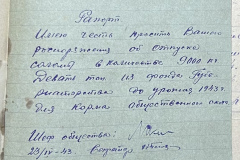 Рапорт
Имею честь просить Вашего
распоряжения об отпуске
соломы в количестве 9000 кг.
Девять тон из фонда
до урожая 1943 г.
для корма общественного скота
Шеф общества:
23/IV-43.